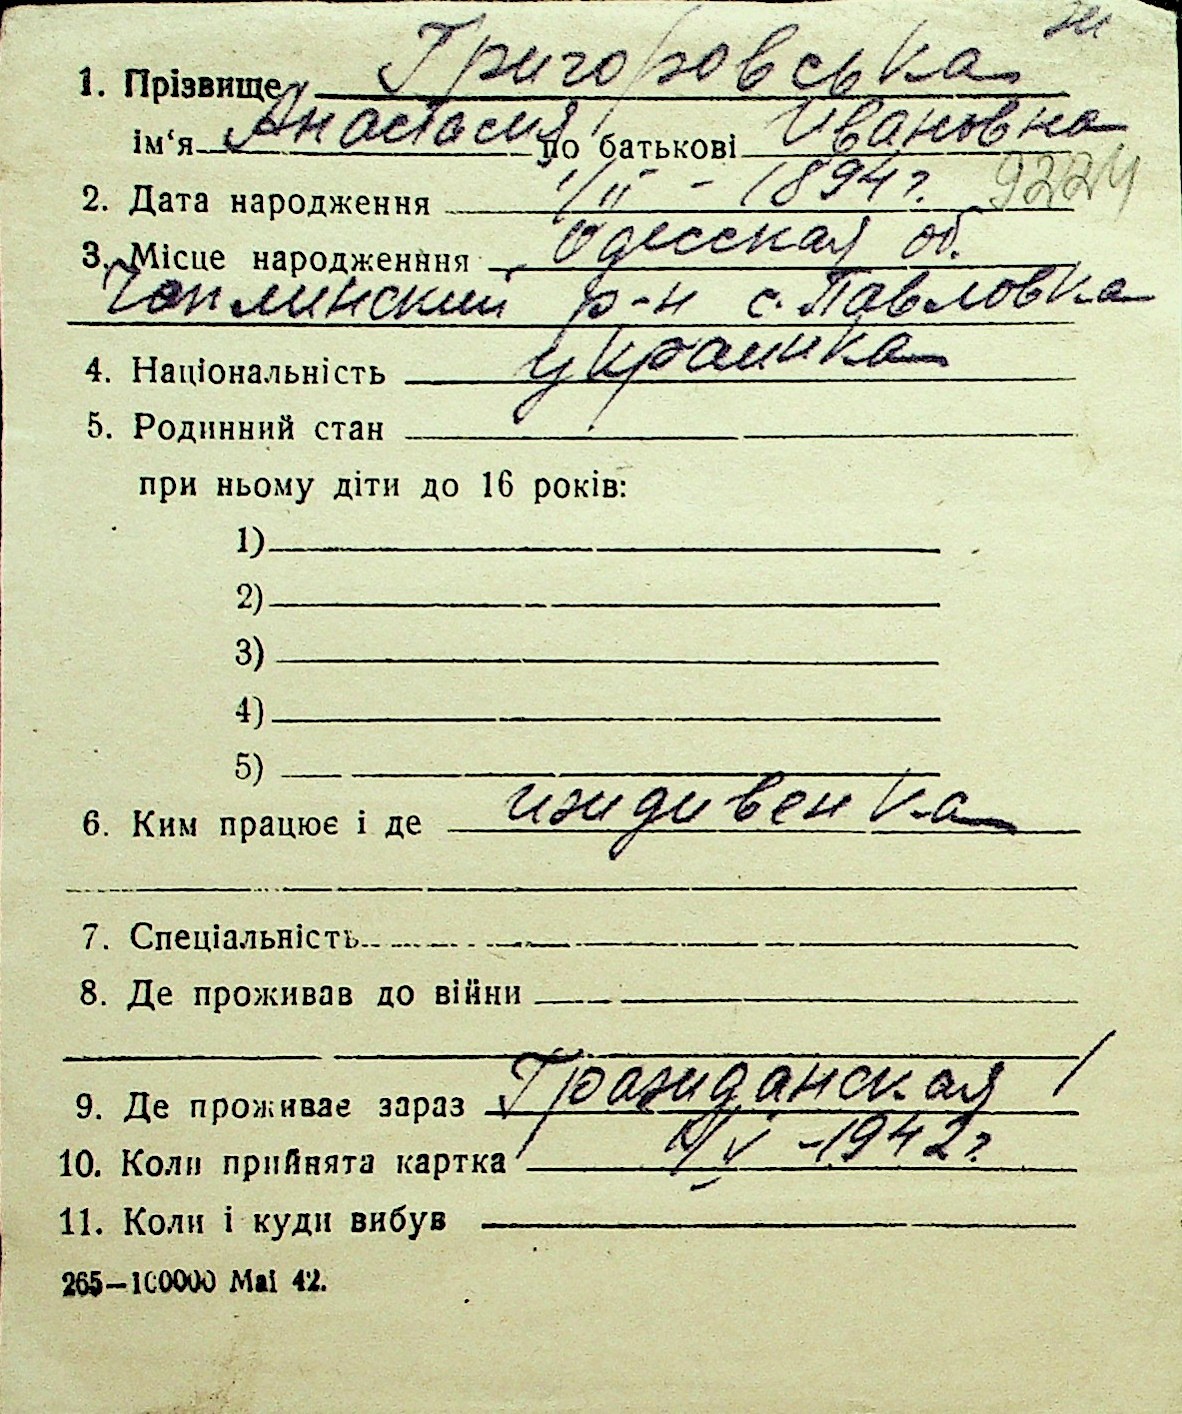 ж
1. Прізвище Григоровська
ім'я Анастасия по батькові Ивановна
2. Дата народження 1/II - 1894 г. 9224
3. Місце народженння Одесская об.
Чаплинский р-н с. Павловка
4. Національність украинка
5. Родинний стан
при ньому діти до 16 років:
1)
2)
3)
4)
5)
6. Ким працює і де иждивенка
7. Спеціальність
8. Де проживав до війни
9. Де проживає зараз Гражданская 1
10. Коли прийнята картка /V - 1942 г.
11. Коли і куди вибув
265—100000 Маі 42.